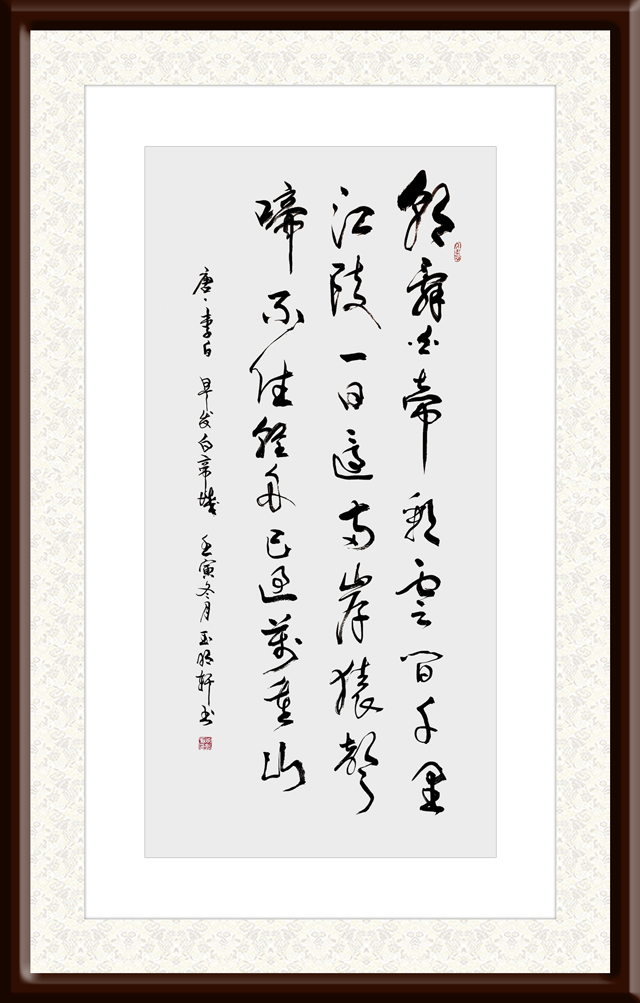 朝辭白帝彩雲間千里
江陵一日還兩岸猿聲
啼不住輕舟已過萬重山
唐、李白 早发白帝城 壬寅冬月 玉明軒书